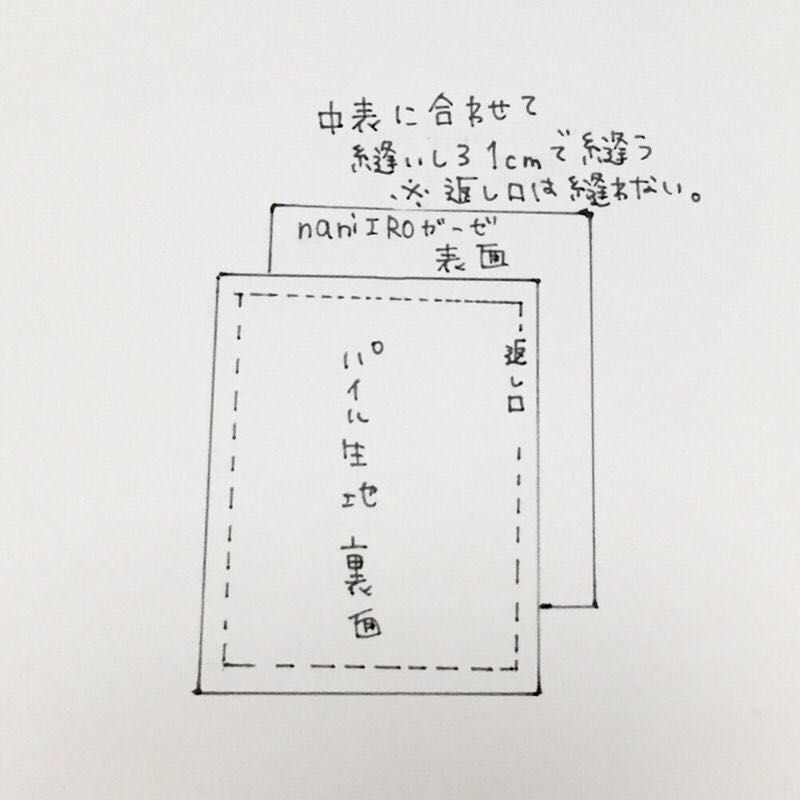 中表に合わせて
縫いしろ1cmで縫う
※返し口は縫わない。
naniIROガーゼ
表面
返し口
パイル生地 裏面